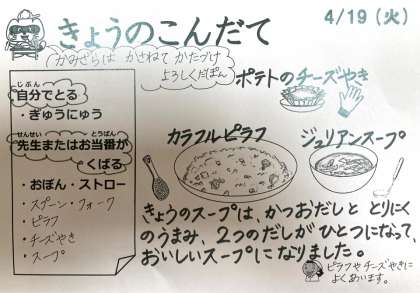 きょうのこんだて
4/19（火）
かみざらは かさねて かたづけ
よろしくだぽん
ポテトのチーズやき
じぶん
自分でとる
・ぎゅうにゅう
せんせい とうばん
先生またはお当番が
くばる
・おぼん・ストロー
・スプーン・フォーク
・ピラフ
・チーズやき
・スープ
カラフルピラフ
ジュリアンスープ
きょうのスープは、かつおだしと とりにく
のうまみ、2つのだしが ひとつになって、
おいしいスープに なりました。
ピラフやチーズやきに
よくあいます。